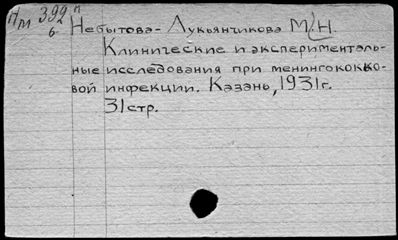 Пм 392 п
6
Небытова-Лукьянчикова М.Н.
Клинические и эксперименталь-
ные исследования при менингококко-
вой инфекции. Казань, 1931г.
31стр.